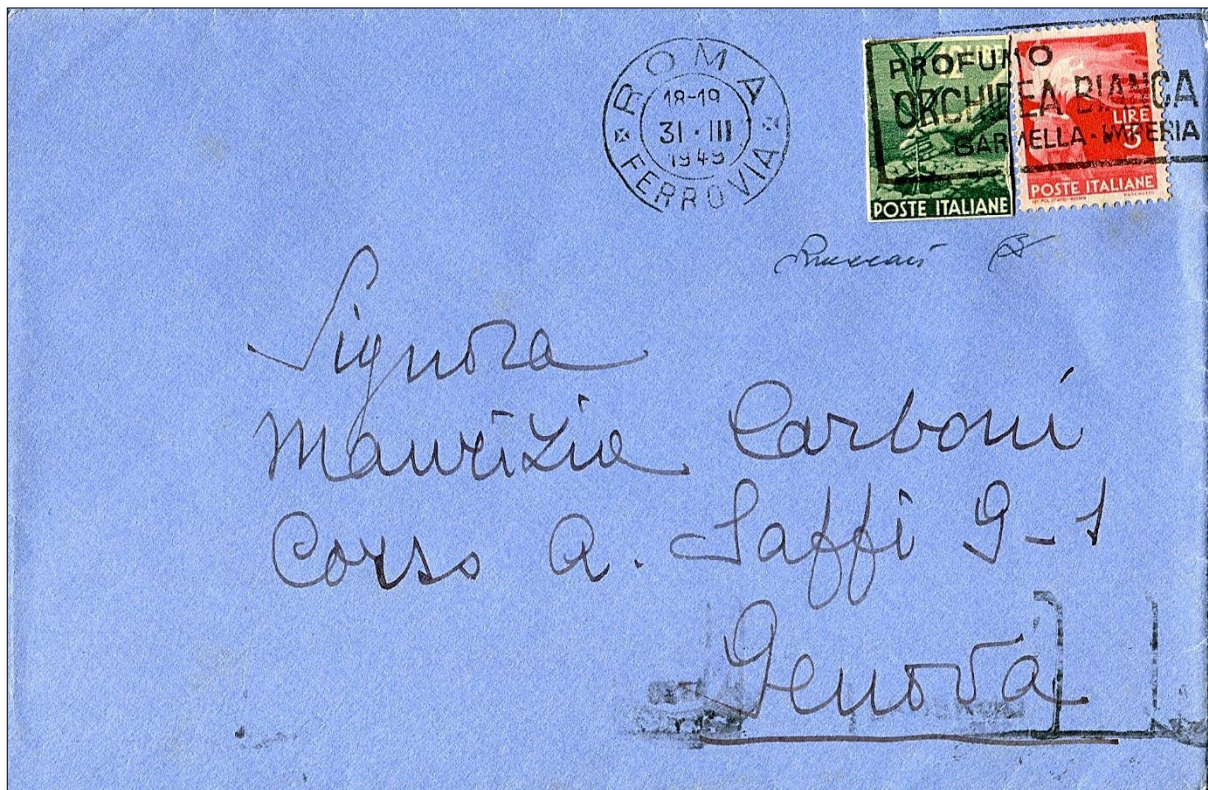 ROMA
18-19
31·III
1949
FERROVIA
PROFUMO
ORCHIDEA BIANCA
GARNELLA-IMPERIA
LIRE
POSTE ITALIANE
LIRE
3
POSTE ITALIANE
Signora
Maurizia Carboni
Corso A. Saffi 9-1
Genova